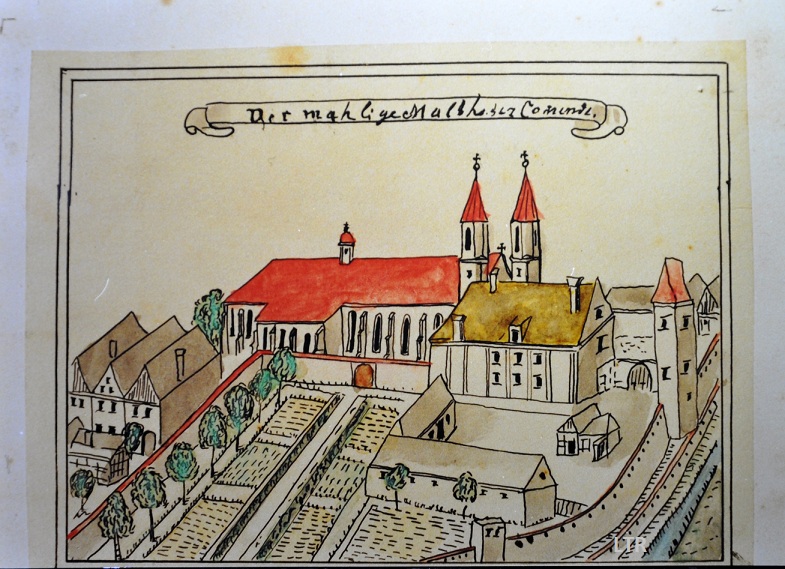 Der mahlige Maltheser Com̄ende.
LTR